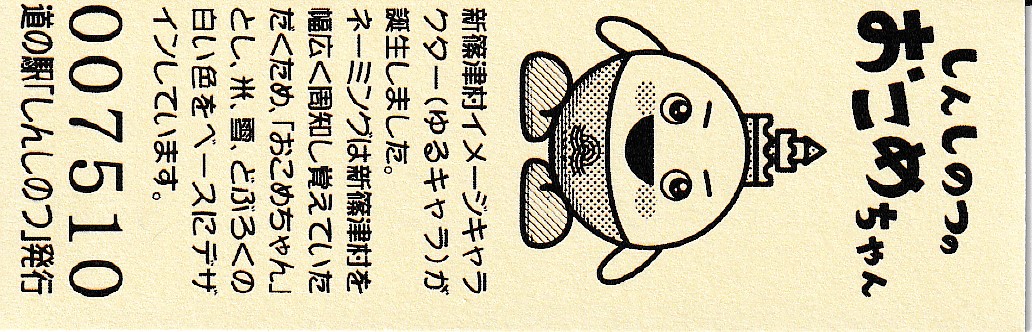 しんしのつの
おこめちゃん
新篠津村イメージキャラ
クター(ゆるキャラ)が
誕生しました。
ネーミングは新篠津村を
幅広く周知し覚えていた
だくため、「おこめちゃん」
とし、米、雪、どぶろくの
白い色をベースにデザ
インしています。
007510
道の駅「しんしのつ」発行